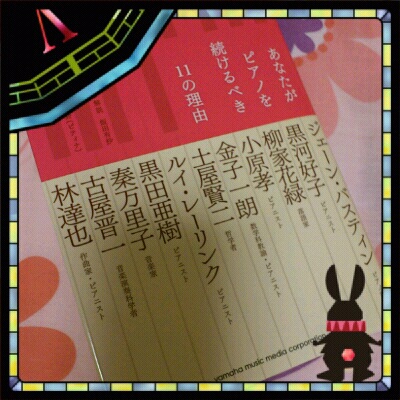 あなたが
ピアノを
続けるべき
11の理由
ジェーン・バスティン
ピアニスト
黒河好子
ピアニスト
柳家花緑
落語家
小原孝
ピアニスト
金子一朗
数学科教諭・ピアニスト
土屋賢二
哲学者
ルイ・レーリンク
ピアニスト
黒田亜樹
ピアニスト
秦万里子
音楽家
古屋晋一
音楽演奏科学者
林達也
作曲家・ピアニスト
yamaha music media corporation